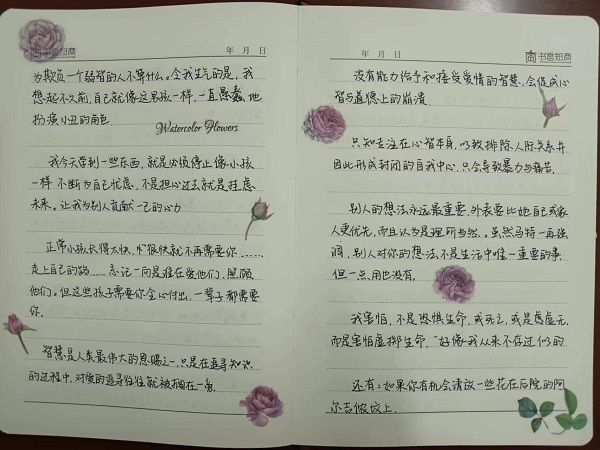 书香知商
年 月 日
为欺负一个弱智的人不算什么。令我生气的是，我
想起不久前，自己就像这男孩一样，一直愚蠢地
扮演小丑的角色
Watercolor Flowers
我今天学到一些东西，就是必须停止像小孩
一样，不断为自己忧虑，不是担心过去就是挂虑
未来。让我为别人贡献一己的心力
正常小孩长得太快，才很快就不再需要你……
走上自己的路……忘记一向是谁在爱他们，照顾
他们。但这些孩子需要你全心付出，一辈子都需要
你。
智慧是人类最伟大的恩赐之一，只是在追寻知识
的过程中，对爱的追寻往往就被搁在一旁。
年 月 日
书香知商
没有能力给予和接受爱情的智慧，会促成心
智与道德上的崩溃
只知专注在心智本身，以致排除人际关系并
因此形成封闭的自我中心，只会导致暴力与痛苦。
别人的想法永远最重要，外表要比她自己或家
人更优先，而且认为是理所当然。虽然马特一再强
调，别人对你的想法，不是生活中唯一重要的事，
但一点用也没有。
我害怕，不是恐惧生命，或死亡，或是虚无，
而是害怕虚掷生命，好像我从来不存过似的
还有：如果你有机会请放一些花在后院的阿
尔吉侬坟上.